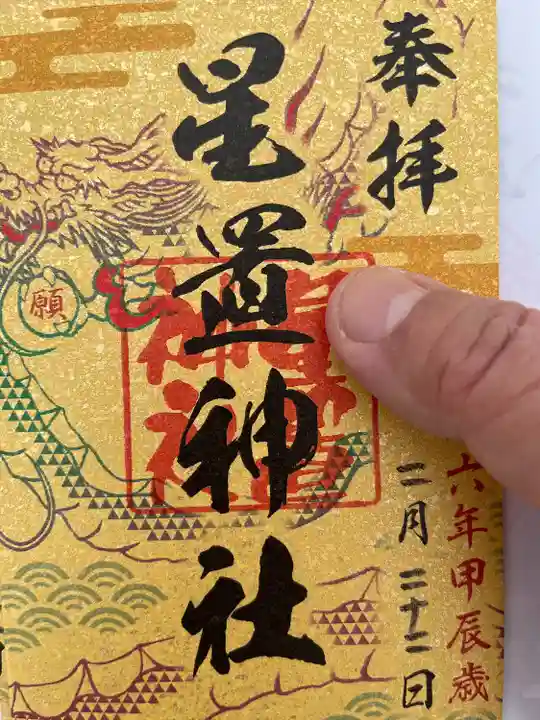 奉拝
六年甲辰歳
二月二十二日
星置神社
願